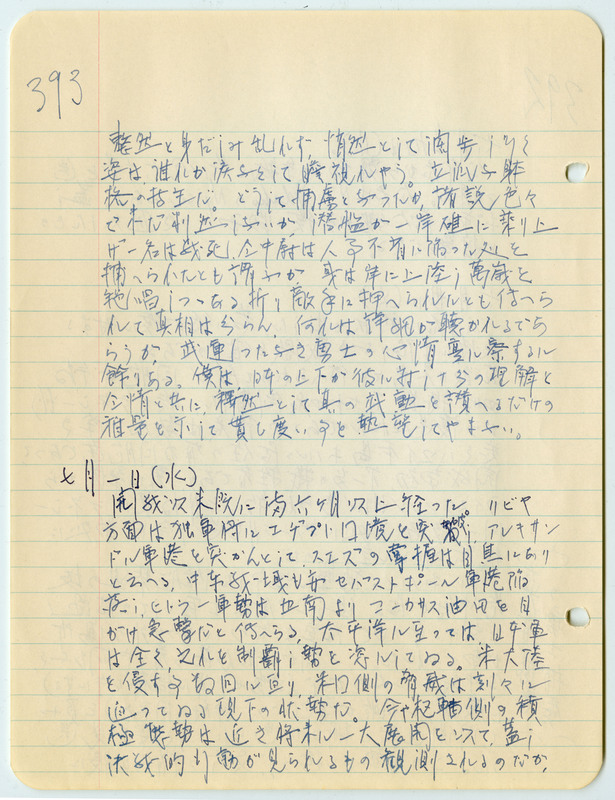 393
整然と身だしみ乱れず 悄然として濶歩し行く
姿は誰れか涙なくして膽視れやう。立派な躰
格の持主だ。どうして捕虜となつたか、諸説色々
で未だ判然しないが 潜艦が一岸礁に乗り上
げ一名は戦死、全中尉は人事不省に陥つた処を
捕へられたとも謂ふが 身は岸に上陸し萬歳を
絶唱しつゝある折り敵手に押へられたとも伝へら
れて真相は分らん。何れは詳細が聴かれるであ
らうが、武運つたなき勇士の心情裏に察するに
餘りある。僕は、日本の上下が彼に対し十分の理解と
全情と共に、釋然として真の武勲を讃へるだけの
雅量を示して貰し度い事を熱望してやまない。
七月一日(水)
開戦以来既に満六ケ月以上経つた。リビヤ
方面は独軍将にエヂプト国境を突破し、アレキサン
ドル軍港を突かんとして、スエズの掌握は目焦にあり
と云へる。中東戦域も亦セバストポール軍港陥
落し、ヒトラー軍勢は更に南より コーカサス油田を目
がけ急撃だと伝へらる。太平洋に至つては日本軍
は全く之れを制覇し勢を恣にしてゐる。米大陸
を侵する数回に亘り、米国側の脅威は刻々に
迫つてゐる現下の状勢だ。今や枢軸側の積
極態勢は近き将来に一大展開として、蓋し
決戦的行動が見られるもの観測されるのだが、